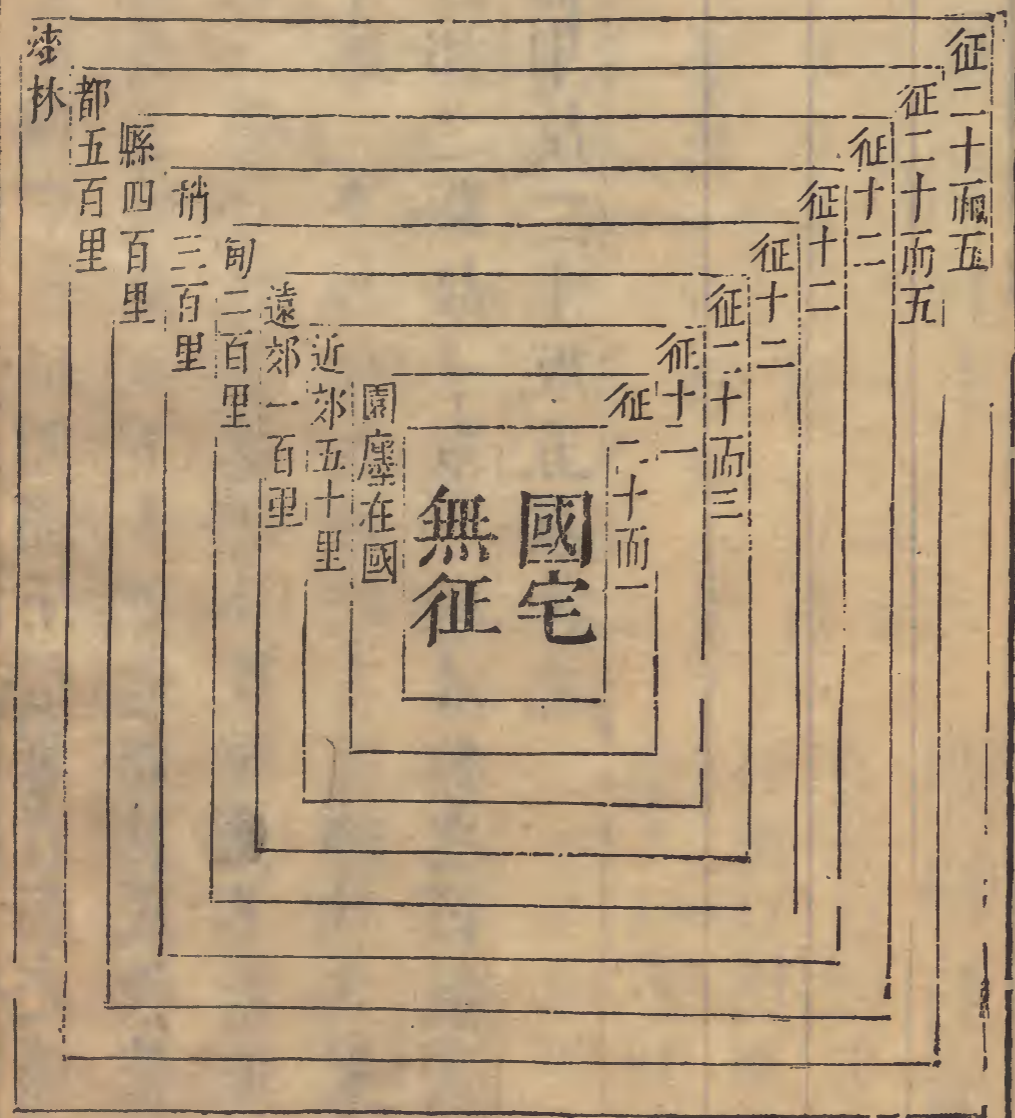 征二十而五
征二十而五
征十二
征十二
征十二
征二十而三
征十二
征二十而一
國宅
無征
園廛在國
近郊五十里
遠郊一百里
甸二百里
稍三百里
縣四百里
都五百里
漆林